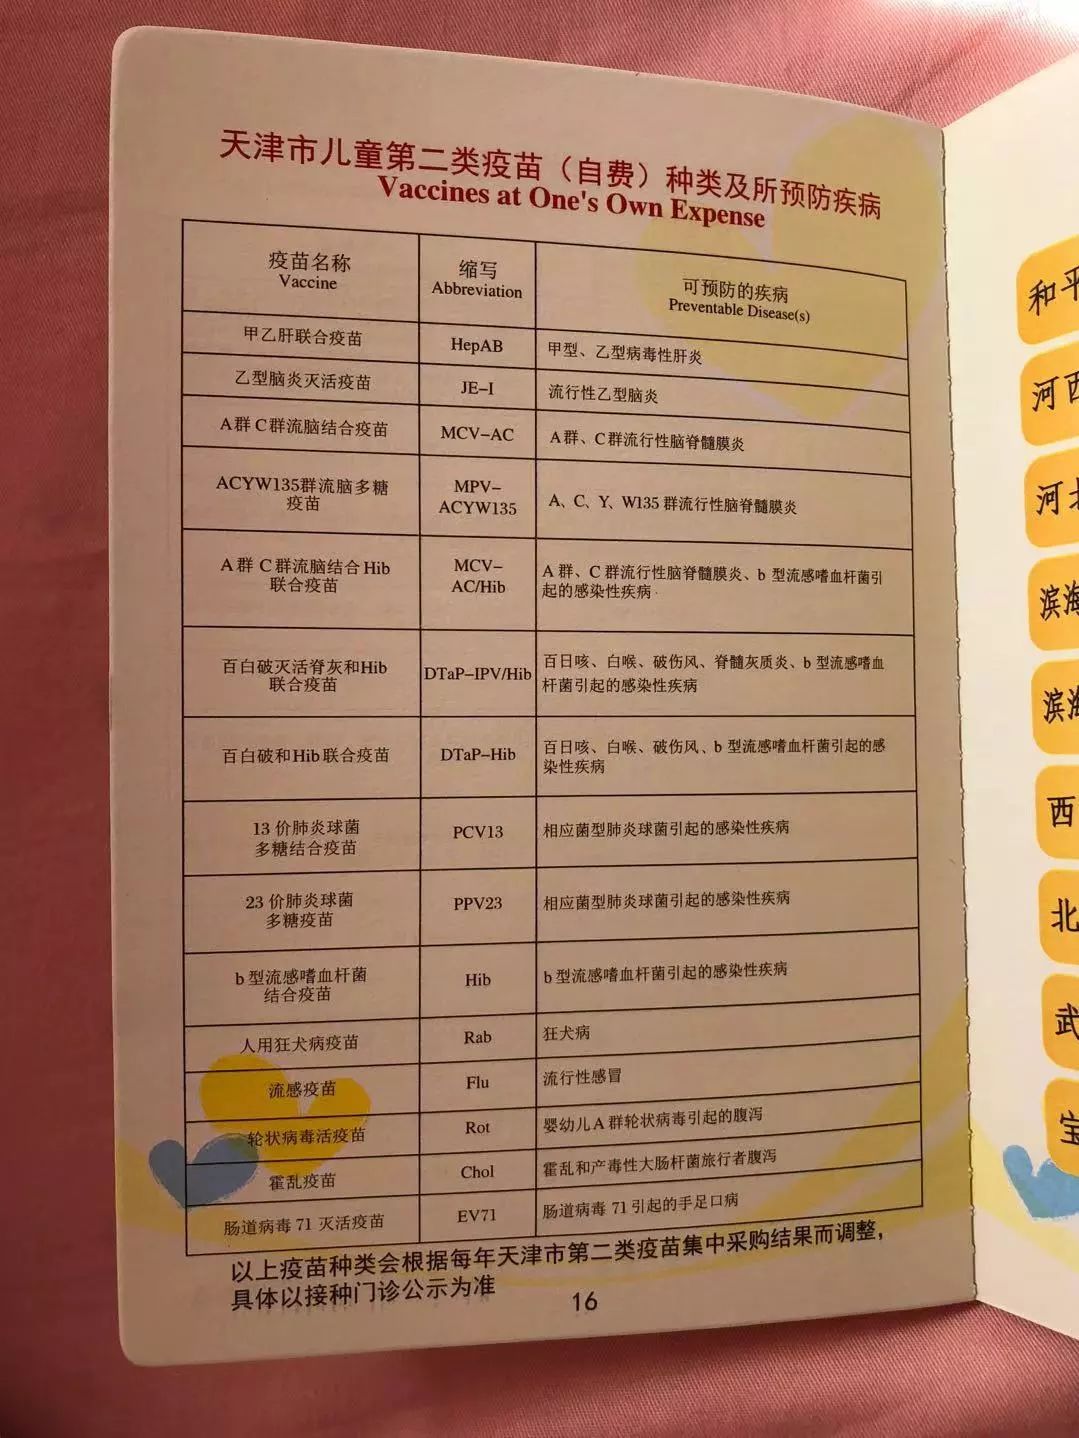 天津市儿童第二类疫苗（自费）种类及所预防疾病
Vaccines at One's Own Expense
疫苗名称
Vaccine
缩写
Abbreviation
可预防的疾病
Preventable Disease(s)
甲乙肝联合疫苗
HepAB
甲型、乙型病毒性肝炎
乙型脑炎灭活疫苗
JE-I
流行性乙型脑炎
A群C群流脑结合疫苗
MCV-AC
A群、C群流行性脑脊髓膜炎
ACYW135群流脑多糖
疫苗
MPV-
ACYW135
A、C、Y、W135群流行性脑脊髓膜炎
A群C群流脑结合Hib
联合疫苗
MCV-
AC/Hib
A群、C群流行性脑脊髓膜炎、b型流感嗜血杆菌引
起的感染性疾病
百白破灭活脊灰和Hib
联合疫苗
DTaP-IPV/Hib
百日咳、白喉、破伤风、脊髓灰质炎、b型流感嗜血
杆菌引起的感染性疾病
百白破和Hib联合疫苗
DTaP-Hib
百日咳、白喉、破伤风、b型流感嗜血杆菌引起的感
染性疾病
13价肺炎球菌
多糖结合疫苗
PCV13
相应菌型肺炎球菌引起的感染性疾病
23价肺炎球菌
多糖疫苗
PPV23
相应菌型肺炎球菌引起的感染性疾病
b型流感嗜血杆菌
结合疫苗
Hib
b型流感嗜血杆菌引起的感染性疾病
人用狂犬病疫苗
Rab
狂犬病
流感疫苗
Flu
流行性感冒
轮状病毒活疫苗
Rot
婴幼儿A群轮状病毒引起的腹泻
霍乱疫苗
Chol
霍乱和产毒性大肠杆菌旅行者腹泻
肠道病毒71灭活疫苗
EV71
肠道病毒71引起的手足口病
以上疫苗种类会根据每年天津市第二类疫苗集中采购结果而调整，
具体以接种门诊公示为准
16
和平
河西
河北
滨海
滨海
西
北
武
宝